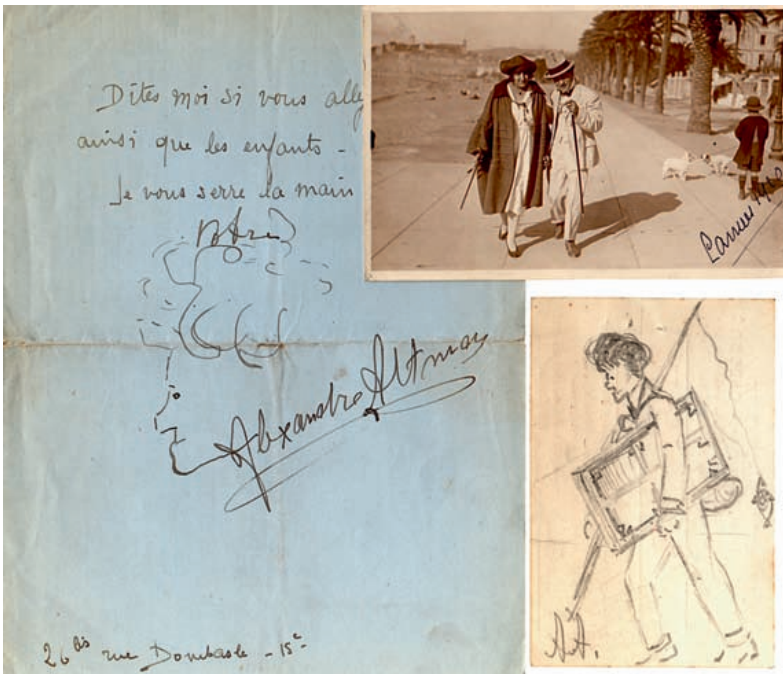 Dites moi si vous allez
ainsi que les enfants -
Je vous serre la main
Votre
Alexandre Altman
26 bis rue Dombasle - 15e -
Cannes
A.A.